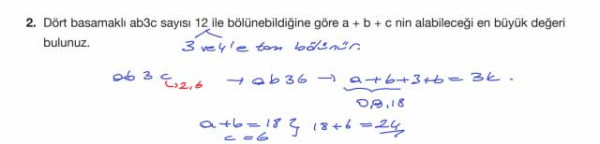 2. Dört basamaklı ab3c sayısı 12 ile bölünebildiğine göre a + b + c nin alabileceği en büyük değeri
bulunuz.
3 ve 4'e tam bölünür.
ab3c ↳2,6 → ab36 → a+b+3+6 = 3k.
0,9,18
a+b=18 } 18+6 = 24
c=6